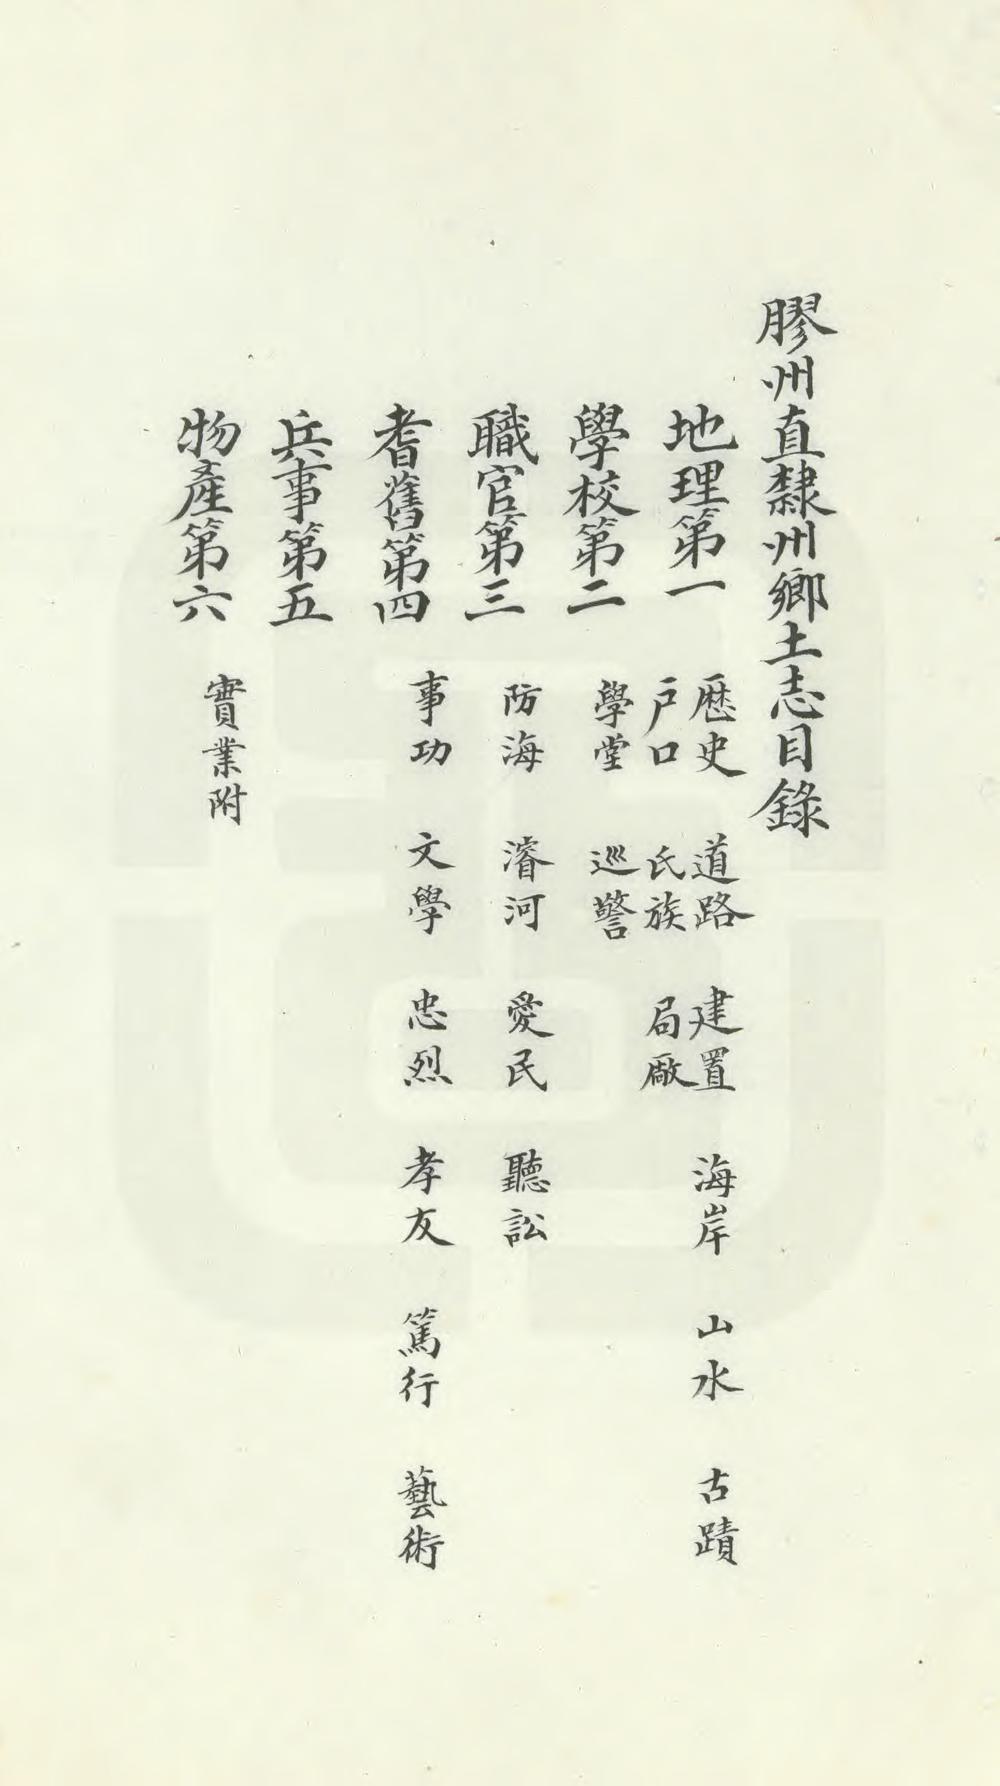 膠州直隸州鄉土志目錄
地理第一 歷史 道路 建置 海岸 山水 古蹟
戶口 氏族 局廠
學校第二 學堂 巡警
職官第三 防海 濬河 愛民 聽訟
耆舊第四 事功 文學 忠烈 孝友 篤行 藝術
兵事第五
物產第六 實業附